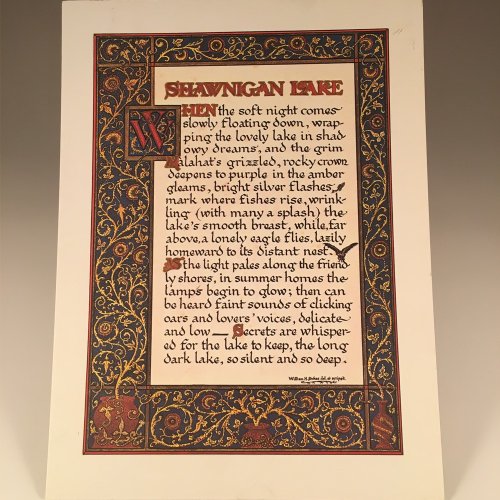 SHAWNIGAN LAKE
WHEN the soft night comes
slowly floating down, wrap-
ping the lovely lake in shad-
owy dreams, and the grim
Malahat's grizzled, rocky crown
deepens to purple in the amber
gleams, bright silver flashes
mark where fishes rise, wrink-
ling (with many a splash) the
lake's smooth breast, while, far
above, a lonely eagle flies, lazily
homeward to its distant nest.
As the light pales along the friend-
ly shores, in summer homes the
lamps begin to glow; then can
be heard faint sounds of clicking
oars and lovers' voices, delicate
and low — Secrets are whisper-
ed for the lake to keep, the long
dark lake, so silent and so deep.
William H.